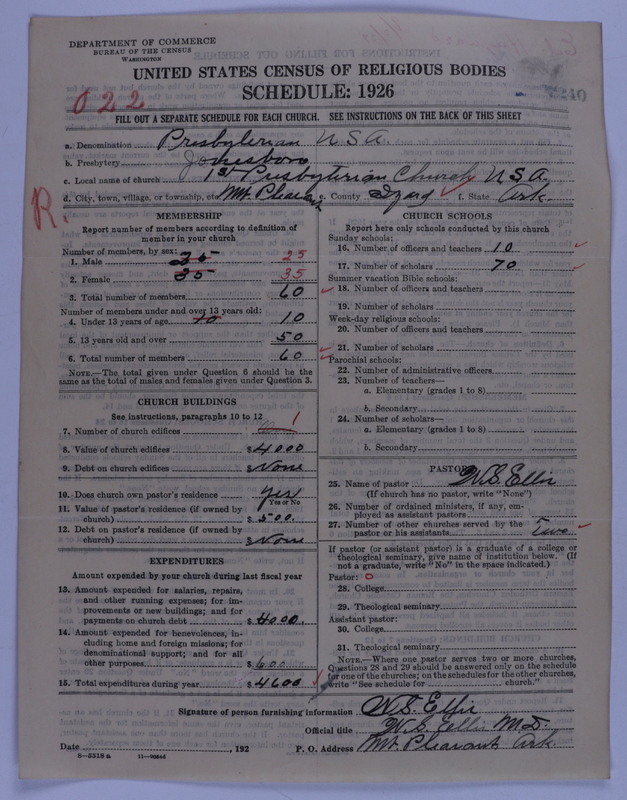 DEPARTMENT OF COMMERCE
BUREAU OF THE CENSUS
WASHINGTON
UNITED STATES CENSUS OF RELIGIOUS BODIES
SCHEDULE: 1926
022
FILL OUT A SEPARATE SCHEDULE FOR EACH CHURCH. SEE INSTRUCTIONS ON THE BACK OF THIS SHEET
a. Denomination Presbyterian U S A.
b. Presbytery Jonesboro
c. Local name of church 1st Presbyterian Church U S A
d. City, town, village, or township, etc. Mt. Pleasant County Izard f. State Ark.
R.
MEMBERSHIP
Report number of members according to definition of member in your church
Number of members, by sex:
1. Male 25
2. Female 35 35
3. Total number of members 60
Number of members under and over 13 years old:
4. Under 13 years of age 10 10
5. 13 years old and over 50
6. Total number of members 60
NOTE.—The total given under Question 6 should be the same as the total of males and females given under Question 3.
CHURCH BUILDINGS
See instructions, paragraphs 10 to 12
7. Number of church edifices 1
8. Value of church edifices $ 4000
9. Debt on church edifices $ None
10. Does church own pastor's residence Yes
Yes or No
11. Value of pastor's residence (if owned by church) $ 500.
12. Debt on pastor's residence (if owned by church) $ None
EXPENDITURES
Amount expended by your church during last fiscal year
13. Amount expended for salaries, repairs, and other running expenses; for improvements or new buildings; and for payments on church debt $ 4000.
14. Amount expended for benevolences, including home and foreign missions; for denominational support; and for all other purposes $ 600
15. Total expenditures during year $ 4600
CHURCH SCHOOLS
Report here only schools conducted by this church
Sunday schools:
16. Number of officers and teachers 10
17. Number of scholars 70
Summer vacation Bible schools:
18. Number of officers and teachers
19. Number of scholars
Week-day religious schools:
20. Number of officers and teachers
21. Number of scholars
Parochial schools:
22. Number of administrative officers
23. Number of teachers—
a. Elementary (grades 1 to 8)
b. Secondary
24. Number of scholars—
a. Elementary (grades 1 to 8)
b. Secondary
PASTOR
25. Name of pastor W.S. Ellis
(If church has no pastor, write "None")
26. Number of ordained ministers, if any, employed as assistant pastors
27. Number of other churches served by the pastor or his assistants Two
If pastor (or assistant pastor) is a graduate of a college or theological seminary, give name of institution below. (If not a graduate, write "No" in the space indicated.)
Pastor: O
28. College
29. Theological seminary
Assistant pastor:
30. College
31. Theological seminary
NOTE.—Where one pastor serves two or more churches, Questions 28 and 29 should be answered only on the schedule for one of the churches; on the schedules for the other churches, write "See schedule for church."
Signature of person furnishing information W.S. Ellis
Official title W.S. Ellis M.D.
Date , 192 P. O. Address Mt. Pleasant Ark.
8—5518a